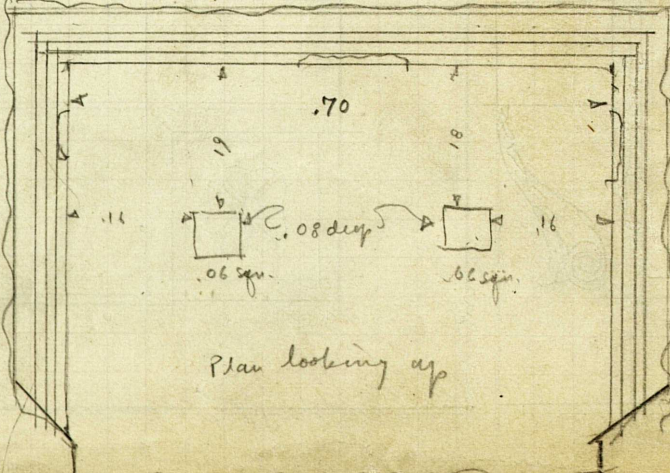 .70
19
18
.16
.08 deep
.16
.06 sqr.
.06 sqr.
Plan looking up